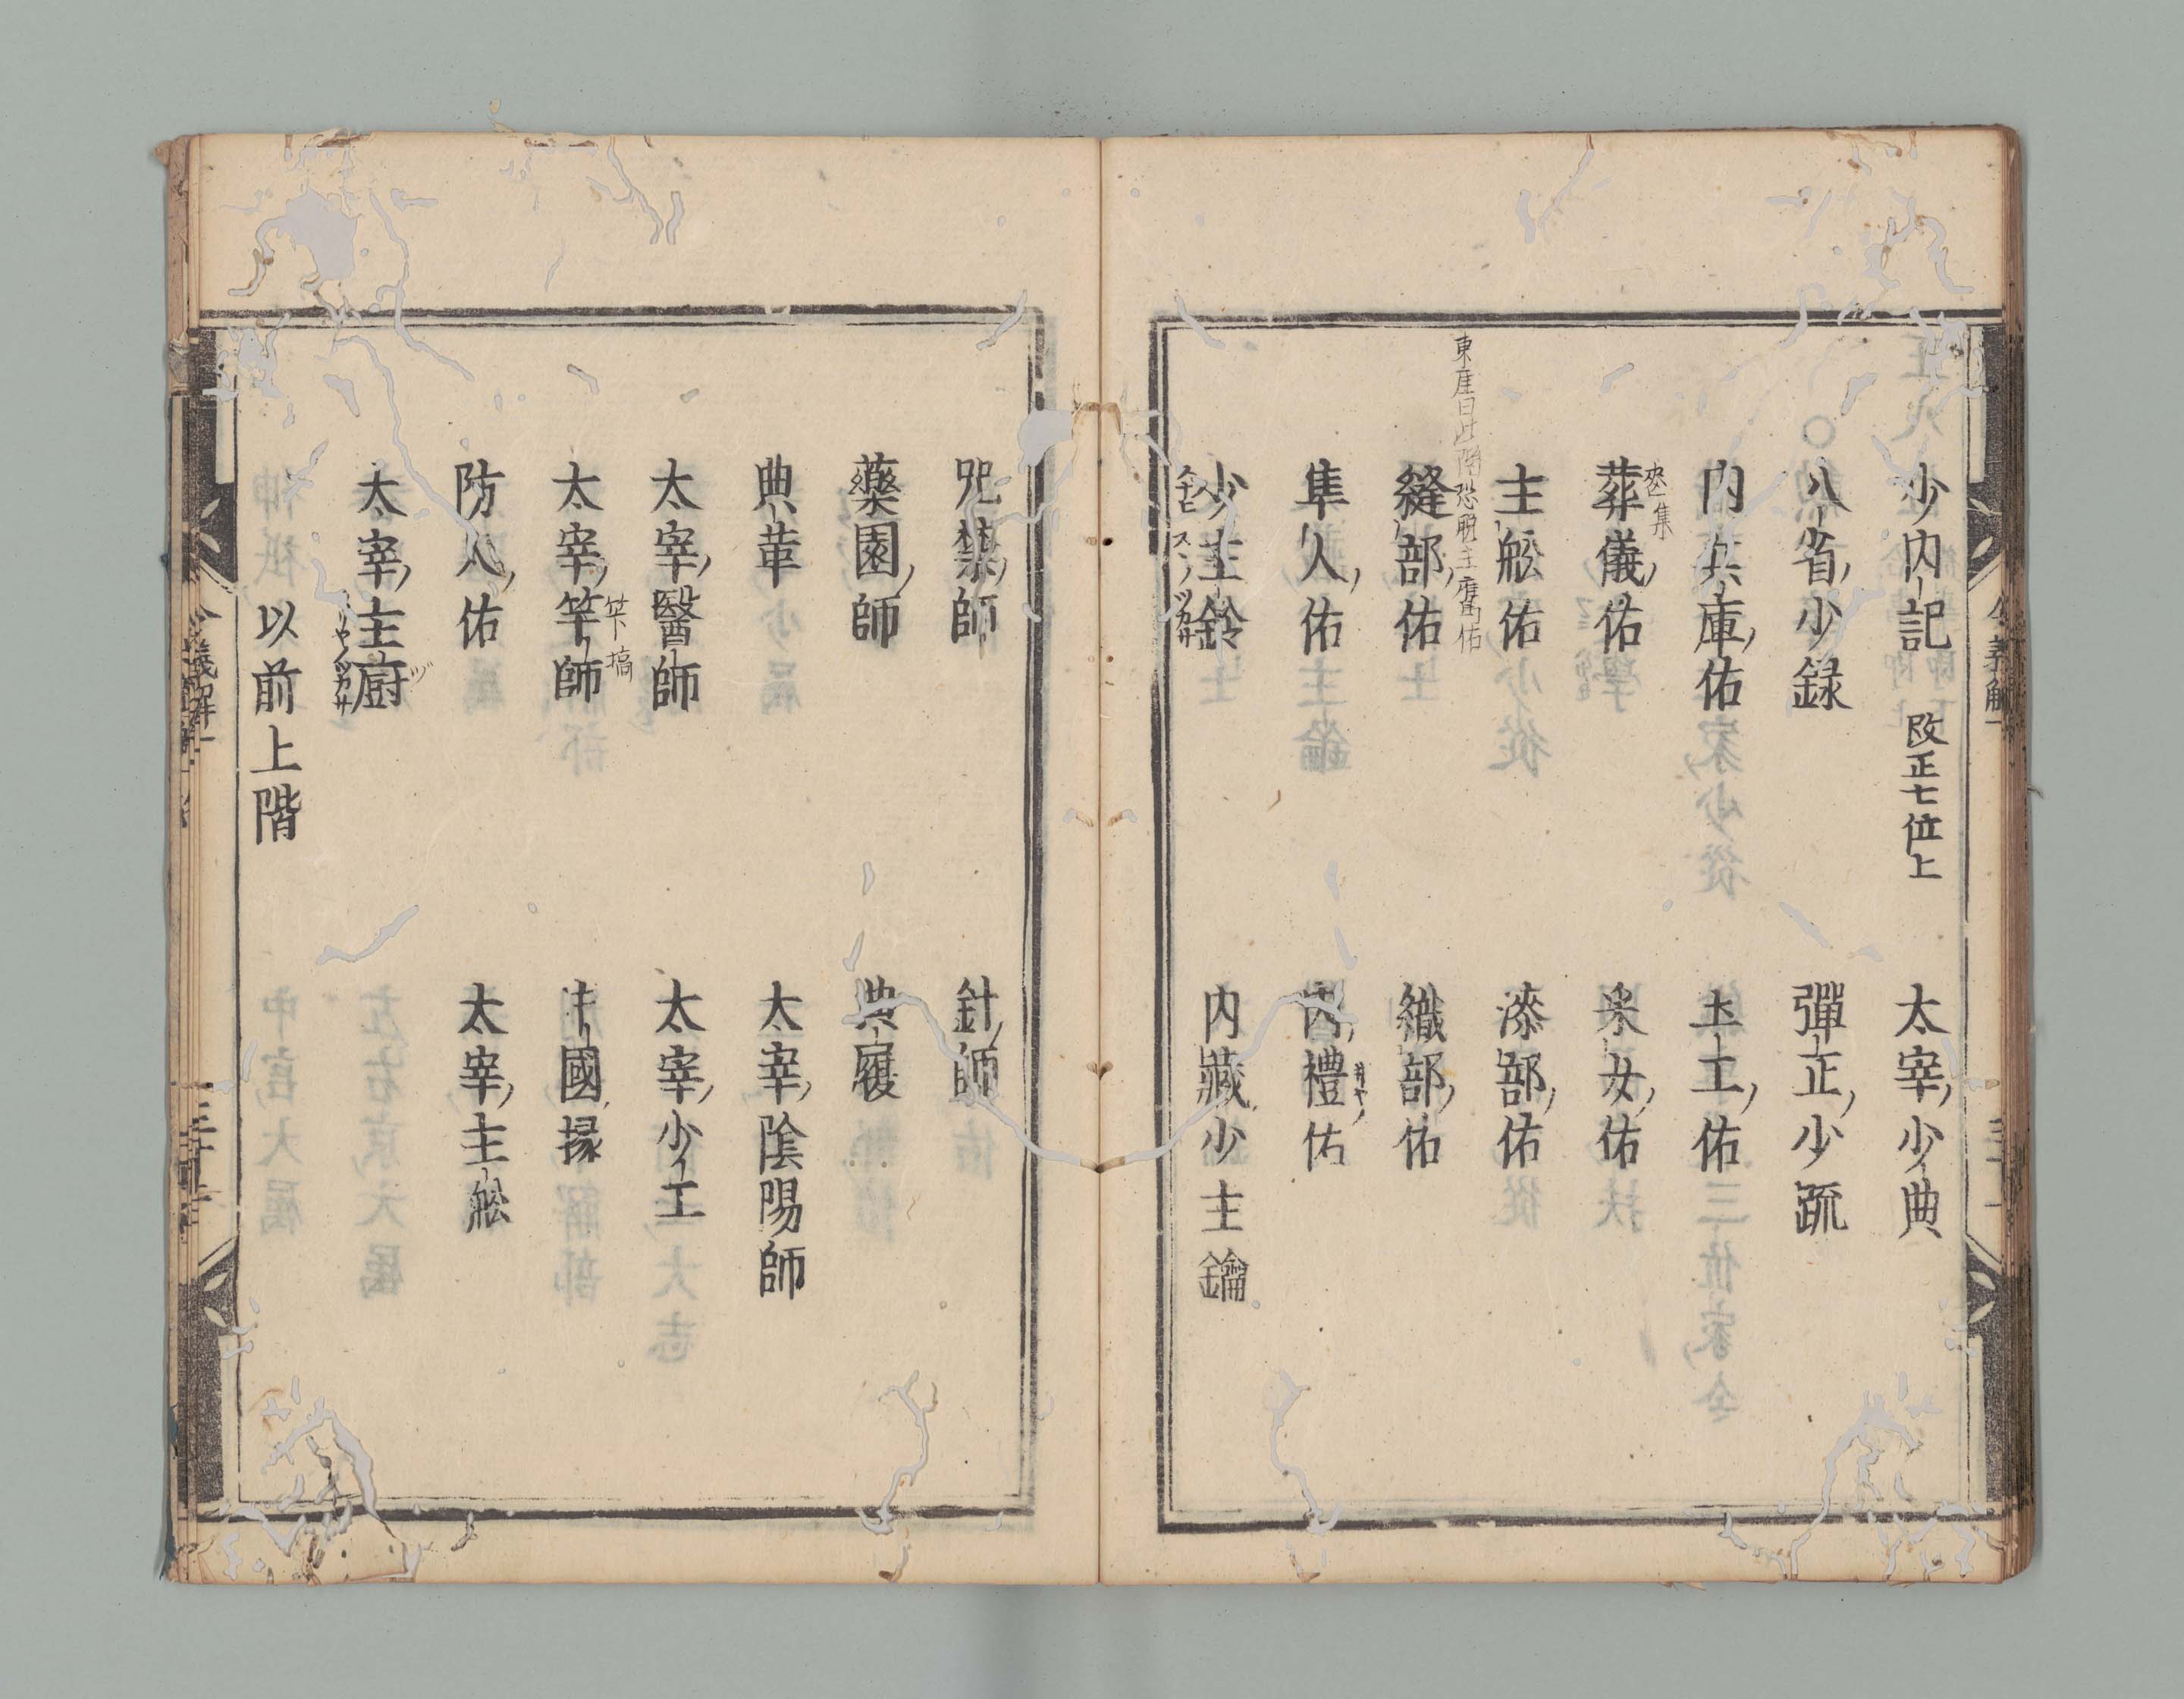 少内記　改正七位上　太宰少典
八省少録　彈正少疏
内兵庫佑　土工佑
葬儀佑　采女佑
主舩佑　漆部佑
東厓曰此間恐脱主鷹佑
縫部佑　織部佑
隼人佑　内禮佑
少主鈴　内藏少主鑰
スヽノツカサ
令義解一
咒禁師　針師
藥園師　典履
典革　太宰陰陽師
太宰醫師　太宰少工
太宰竿師　中國掾
防人佑　太宰主舩
太宰主厨
以前上階
令義解一